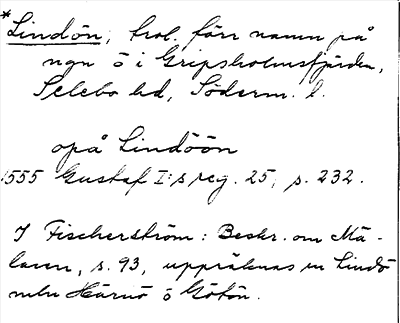 *Lindön, trol. förr namn på
ngn ö i Gripsholmsfjärden,
Selebo hd, Söderm. l.
opå Lindöön
1555 Gustaf I:s reg. 25, s. 232.
I Fischerström: Beskr. om Mä-
laren, s. 93, uppräknas en Lindö
mln Härnö o Götön.